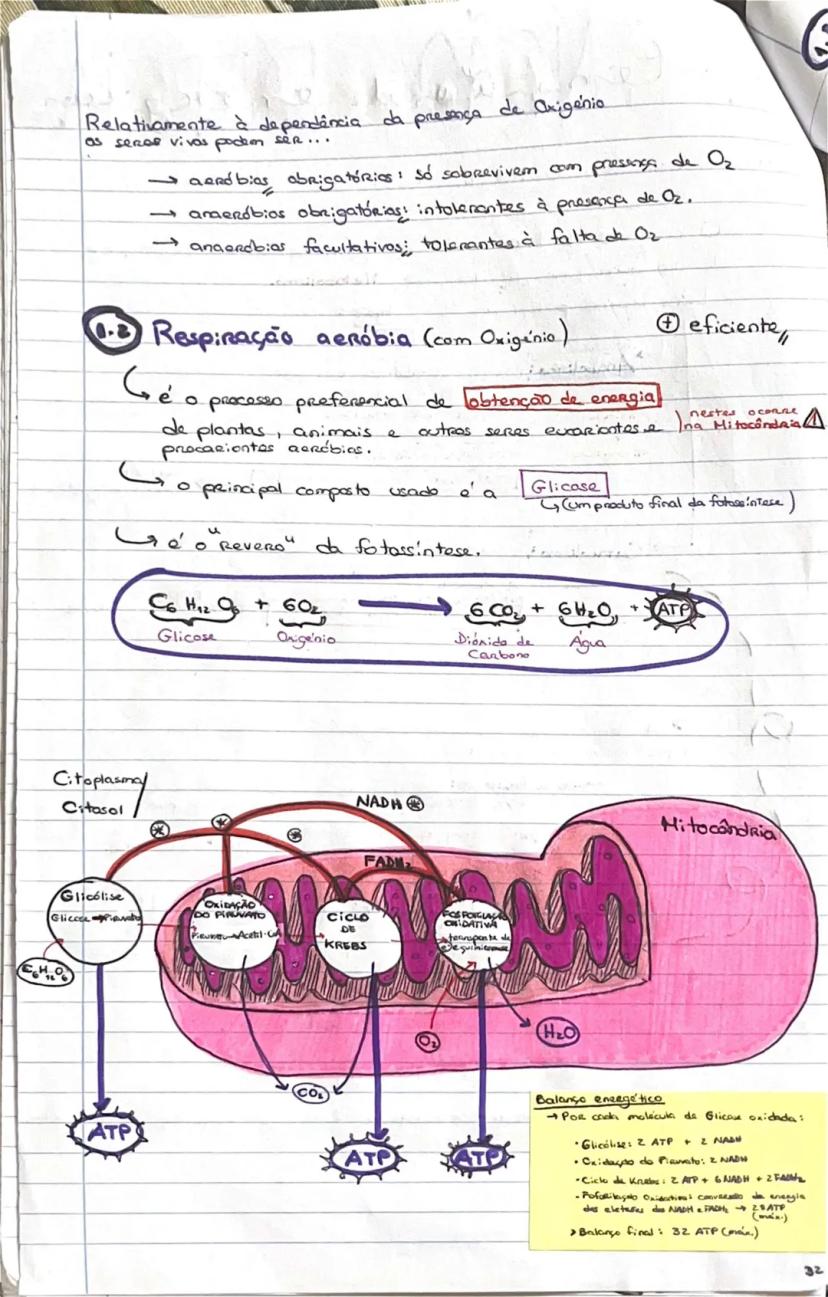 Relativamente à dependência da presença de Oxigénio
os seres vivos podem ser...
→ aeróbios obrigatórios: só sobrevivem com presença de O₂
→ anaeróbios obrigatórios: intolerantes à presença de O₂.
→ anaeróbios facultativos: tolerantes à falta de O₂
1.2 Respiração aeróbia (com Oxigénio) ⊕ eficiente
é o processo preferencial de obtenção de energia
de plantas, animais e outros seres eucariontes e
procariontes aeróbios.
nestes ocorre
na Mitocôndria
o principal composto usado é a Glicose
(um produto final da fotossíntese)
é o "revero" da fotossíntese.
C₆H₁₂O₆ + 6O₂ → 6CO₂ + 6H₂O + ATP
Glicose Oxigénio Dióxido de Carbono Água
Citoplasma/
Citosol
NADH
Mitocôndria
FADH₂
Glicólise
Glicose → Piruvato
C₆H₁₂O₆
OXIDAÇÃO
DO PIRUVATO
Piruvato → Acetil-CoA
CICLO
DE
KREBS
FOSFORILAÇÃO
OXIDATIVA
transporte de
e⁻ e quimiosmose
O₂
H₂O
CO₂
ATP
ATP
ATP
Balanço energético
→ Por cada molécula de Glicose oxidada:
• Glicólise: 2 ATP + 2 NADH
• Oxidação do Piruvato: 2 NADH
• Ciclo de Krebs: 2 ATP + 6 NADH + 2 FADH₂
• Foforilação Oxidativa: conversão da energia
dos eletrões do NADH e FADH₂ → 28 ATP
(máx.)
> Balanço final: 32 ATP (máx.)
32